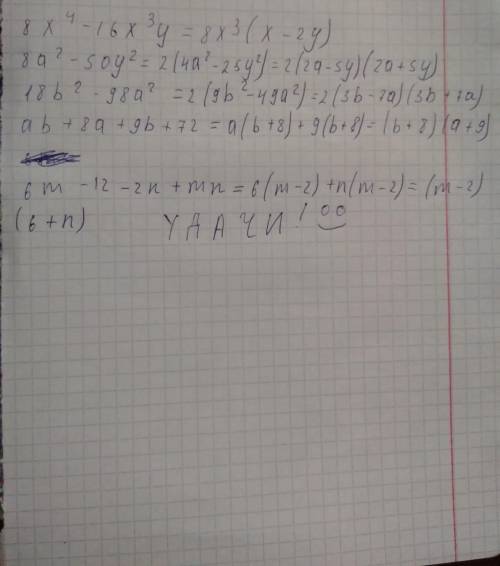 8x⁴ - 16x³y = 8x³(x - 2y)
8a² - 50y² = 2(4a² - 25y²) = 2(2a - 5y)(2a + 5y)
18b² - 98a² = 2(9b² - 49a²) = 2(3b - 7a)(3b + 7a)
ab + 8a + 9b + 72 = a(b+8) + 9(b+8) = (b+8)(a+9)
6m - 12 - 2n + mn = 6(m-2) + n(m-2) = (m-2)
(6+n) УДАЧИ!